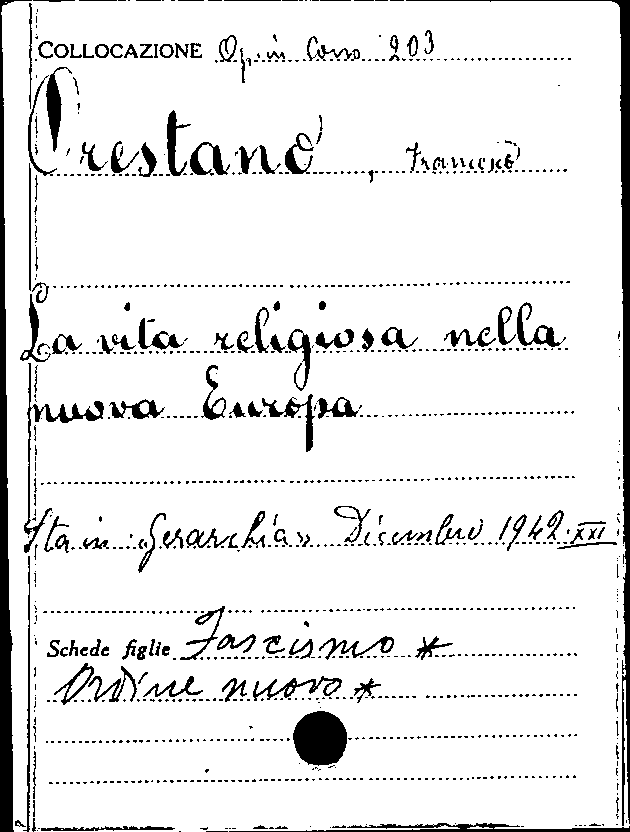 COLLOCAZIONE Op. in Corso 203
Orestano, Francesco
La vita religiosa nella
nuova Europa
Sta in: «Gerarchia» Dicembre 1942.XXI
Schede figlie Fascismo *
Ordine nuovo *